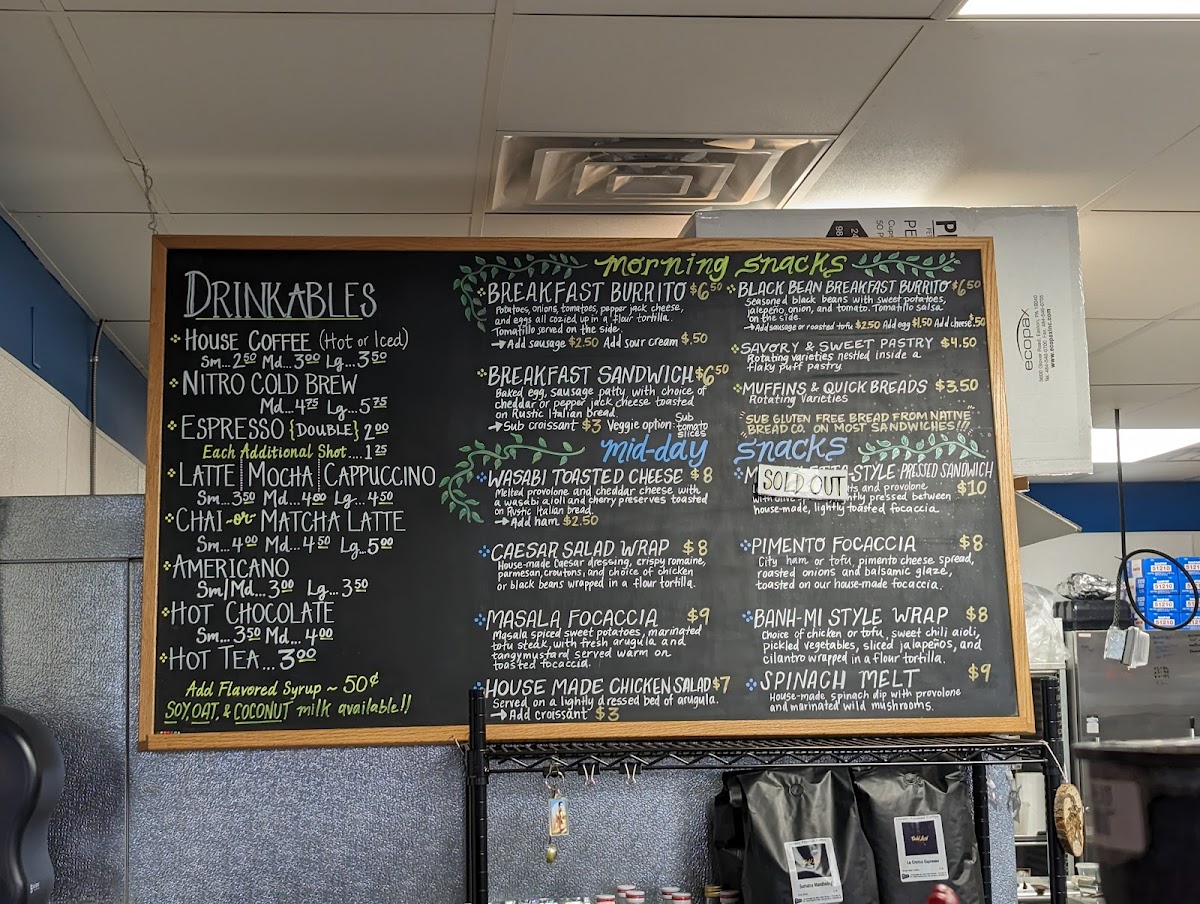 DRINKABLES
HOUSE COFFEE (Hot or Iced)
Sm...2⁵⁰ Md...3⁰⁰ Lg...3⁵⁰
NITRO COLD BREW
Md...4⁷⁵ Lg...5⁷⁵
ESPRESSO {DOUBLE} 2⁰⁰
Each Additional Shot....1²⁵
LATTE | MOCHA | CAPPUCCINO
Sm...3⁵⁰ Md...4⁰⁰ Lg...4⁵⁰
CHAI -or- MATCHA LATTE
Sm...4⁰⁰ Md...4⁵⁰ Lg...5⁰⁰
AMERICANO
Sm/Md...3⁰⁰ Lg...3⁵⁰
HOT CHOCOLATE
Sm...3⁵⁰ Md...4⁰⁰
HOT TEA...3⁰⁰
Add Flavored Syrup ~ 50¢
SOY, OAT, & COCONUT milk available!!
Morning Snacks
BREAKFAST BURRITO $6⁵⁰
Potatoes, onions, tomatoes, pepper jack cheese,
and eggs all cozied up in a flour tortilla.
Tomatillo served on the side.
→Add sausage $2.50 Add sour cream $.50
BREAKFAST SANDWICH $6⁵⁰
Baked egg, sausage patty, with choice of
cheddar or pepper jack cheese toasted
on Rustic Italian bread.
→Sub croissant $3 Veggie option: Sub
tomato
slices
BLACK BEAN BREAKFAST BURRITO $6⁵⁰
Seasoned black beans with sweet potatoes,
jalapeño onion, and tomato. Tomatillo salsa
on the side.
→Add sausage or roasted tofu $2.50 Add egg $1.50 Add cheese $.50
SAVORY & SWEET PASTRY $4.50
Rotating varieties nestled inside a
flaky puff pastry.
MUFFINS & QUICK BREADS $3.50
Rotating Varieties
"SUB GLUTEN FREE BREAD FROM NATIVE
BREAD CO. ON MOST SANDWICHES!!!"
mid-day snacks
WASABI TOASTED CHEESE $8
Melted provolone and cheddar cheese with
a wasabi aioli and cherry preserves toasted
on Rustic Italian bread.
→Add ham $2.50
CAESAR SALAD WRAP $8
House-made Caesar dressing, crispy romaine,
parmesan, croutons, and choice of chicken
or black beans wrapped in a flour tortilla.
MASALA FOCACCIA $9
Masala spiced sweet potatoes, marinated
tofu steak, with fresh arugula and
tangy mustard served warm on
toasted focaccia.
HOUSE MADE CHICKEN SALAD $7
Served on a lightly dressed bed of arugula.
→Add croissant $3
-STYLE PRESSED SANDWICH
SOLD OUT
and provolone $10
pressed between
house-made, lightly toasted focaccia.
PIMENTO FOCACCIA $8
City ham or tofu, pimento cheese spread,
roasted onions and balsamic glaze,
toasted on our house-made focaccia.
BANH-MI STYLE WRAP $8
Choice of chicken or tofu, sweet chili aioli,
pickled vegetables, sliced jalapeños, and
cilantro wrapped in a flour tortilla.
SPINACH MELT $9
House-made spinach dip with provolone
and marinated wild mushrooms.
ecopax
www.ecopaxinc.com
51210
Sumatra Mandheling
La Crema Espresso